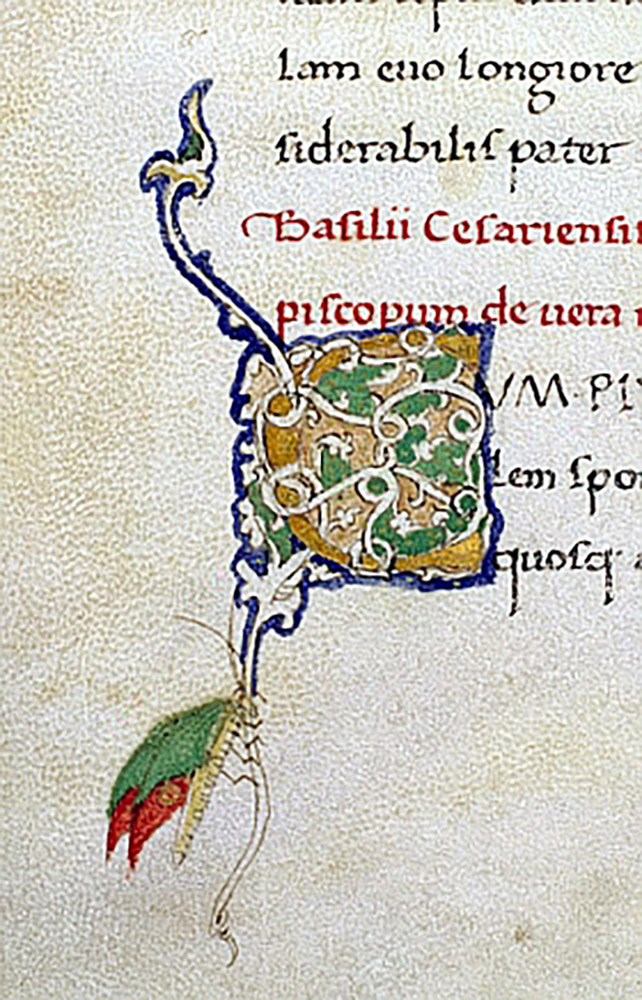 lam euo longiore
siderabilis pater
Basilii Cesariensi
piscopum de uera
CUM PL
lem spon
quosq a